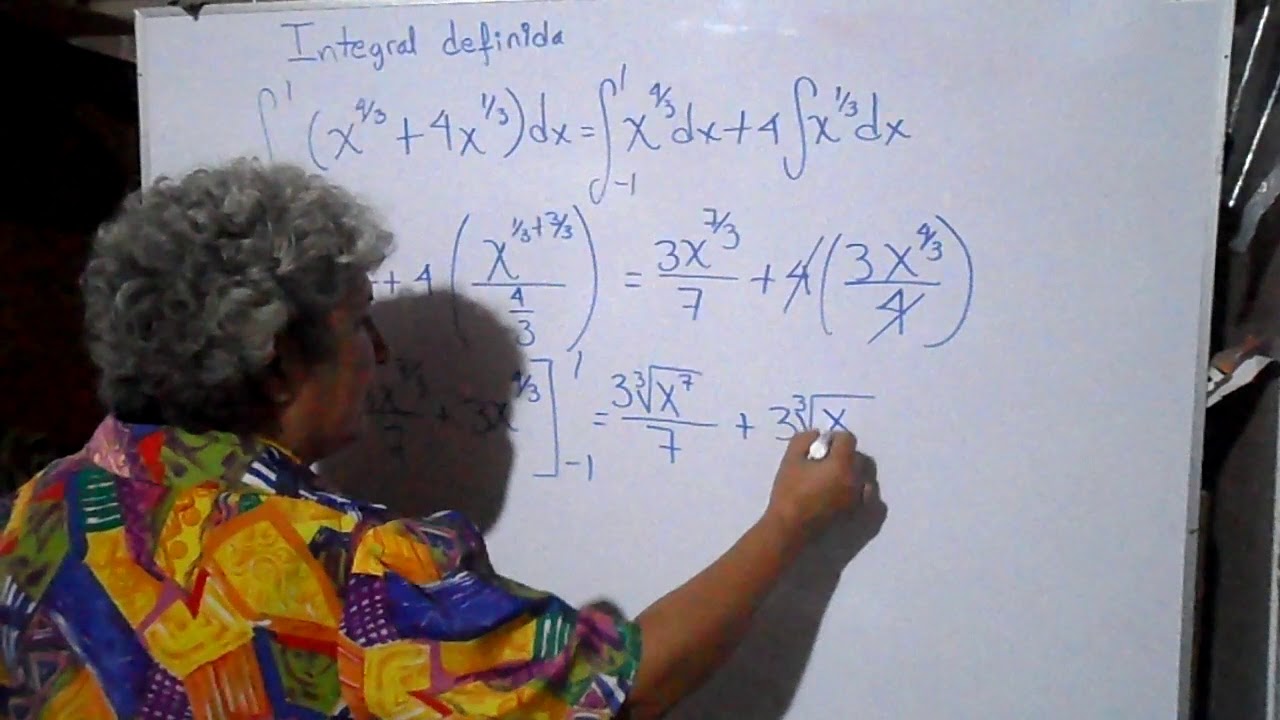 Integral definida
∫¹ (x^{4/3} + 4x^{1/3})dx = ∫₋₁¹ x^{4/3}dx + 4∫x^{1/3}dx
+ 4(x^{1/3+3/3}/(4/3)) = 3x^{7/3}/7 + 4(3x^{4/3}/4)
x^{7/3}/7 + 3x^{4/3}]₋₁¹ = 3∛x⁷/7 + 3∛x